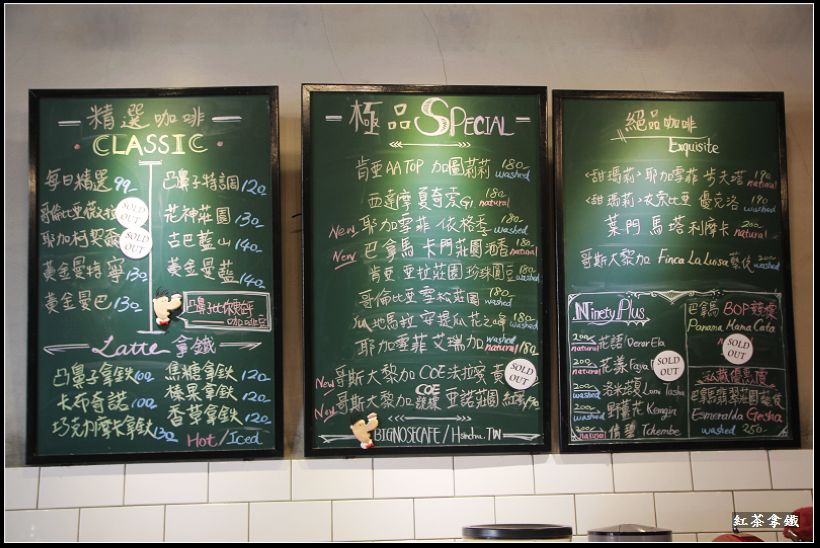 精選咖啡
CLASSIC
每日精選 99.
哥倫比亞薇拉 SOLD OUT
耶加柯契爾 SOLD OUT
黃金曼特寧 130
黃金曼巴 130
凸鼻子特調 120
花神莊園 130
古巴藍山 140
黃金曼藍 140
咖啡豆
Latte 拿鐵
凸鼻子拿鐵 100
卡布奇諾 100
巧克力摩卡拿鐵 130
焦糖拿鐵 120
榛果拿鐵 120
香草拿鐵 120
Hot / Iced
極品 SPECIAL
肯亞 AA TOP 加圖莉莉 180 washed
西達摩 夏奇索 G1 180 natural
New 耶加雪菲 依格季 180 washed
New 巴拿馬 卡門莊園 酒香 180 natural
肯亞 亞拉莊園 珍珠圓豆 180 washed
哥倫比亞 雪松莊園 180 washed
瓜地馬拉 安提瓜 花之峰 180 washed
耶加雪菲 艾瑞加 natural 180
New 哥斯大黎加 COE 法拉蜜 黃 SOLD OUT
New 哥斯大黎加 COE 里諾莊園 紅蜜
BIGNOSECAFE / Hsinchu. TW
絕品咖啡
Exquisite
<甜瑪莉> 耶加雪菲 肯夫塔 190 natural
<甜瑪莉> 衣索比亞 優克洛 190 washed
葉門 馬塔利摩卡 200 natural
哥斯大黎加 Finca La Luisa 藝伎 200 washed
Ninety Plus
200 natural 花語 / Verar Ela
200 natural 花漾 Faya SOLD OUT
200 washed 洛米塔 Lomi Tasha
200 washed 野薑花 Kemgin
200 natural 倩碧 Tchembe
巴拿馬 BOP 競標
Panama Mama Cata
natural SOLD OUT
私藏優惠價
巴拿馬翡翠莊園藝伎
Esmeralda Gesha
washed 250-
紅茶拿鐵